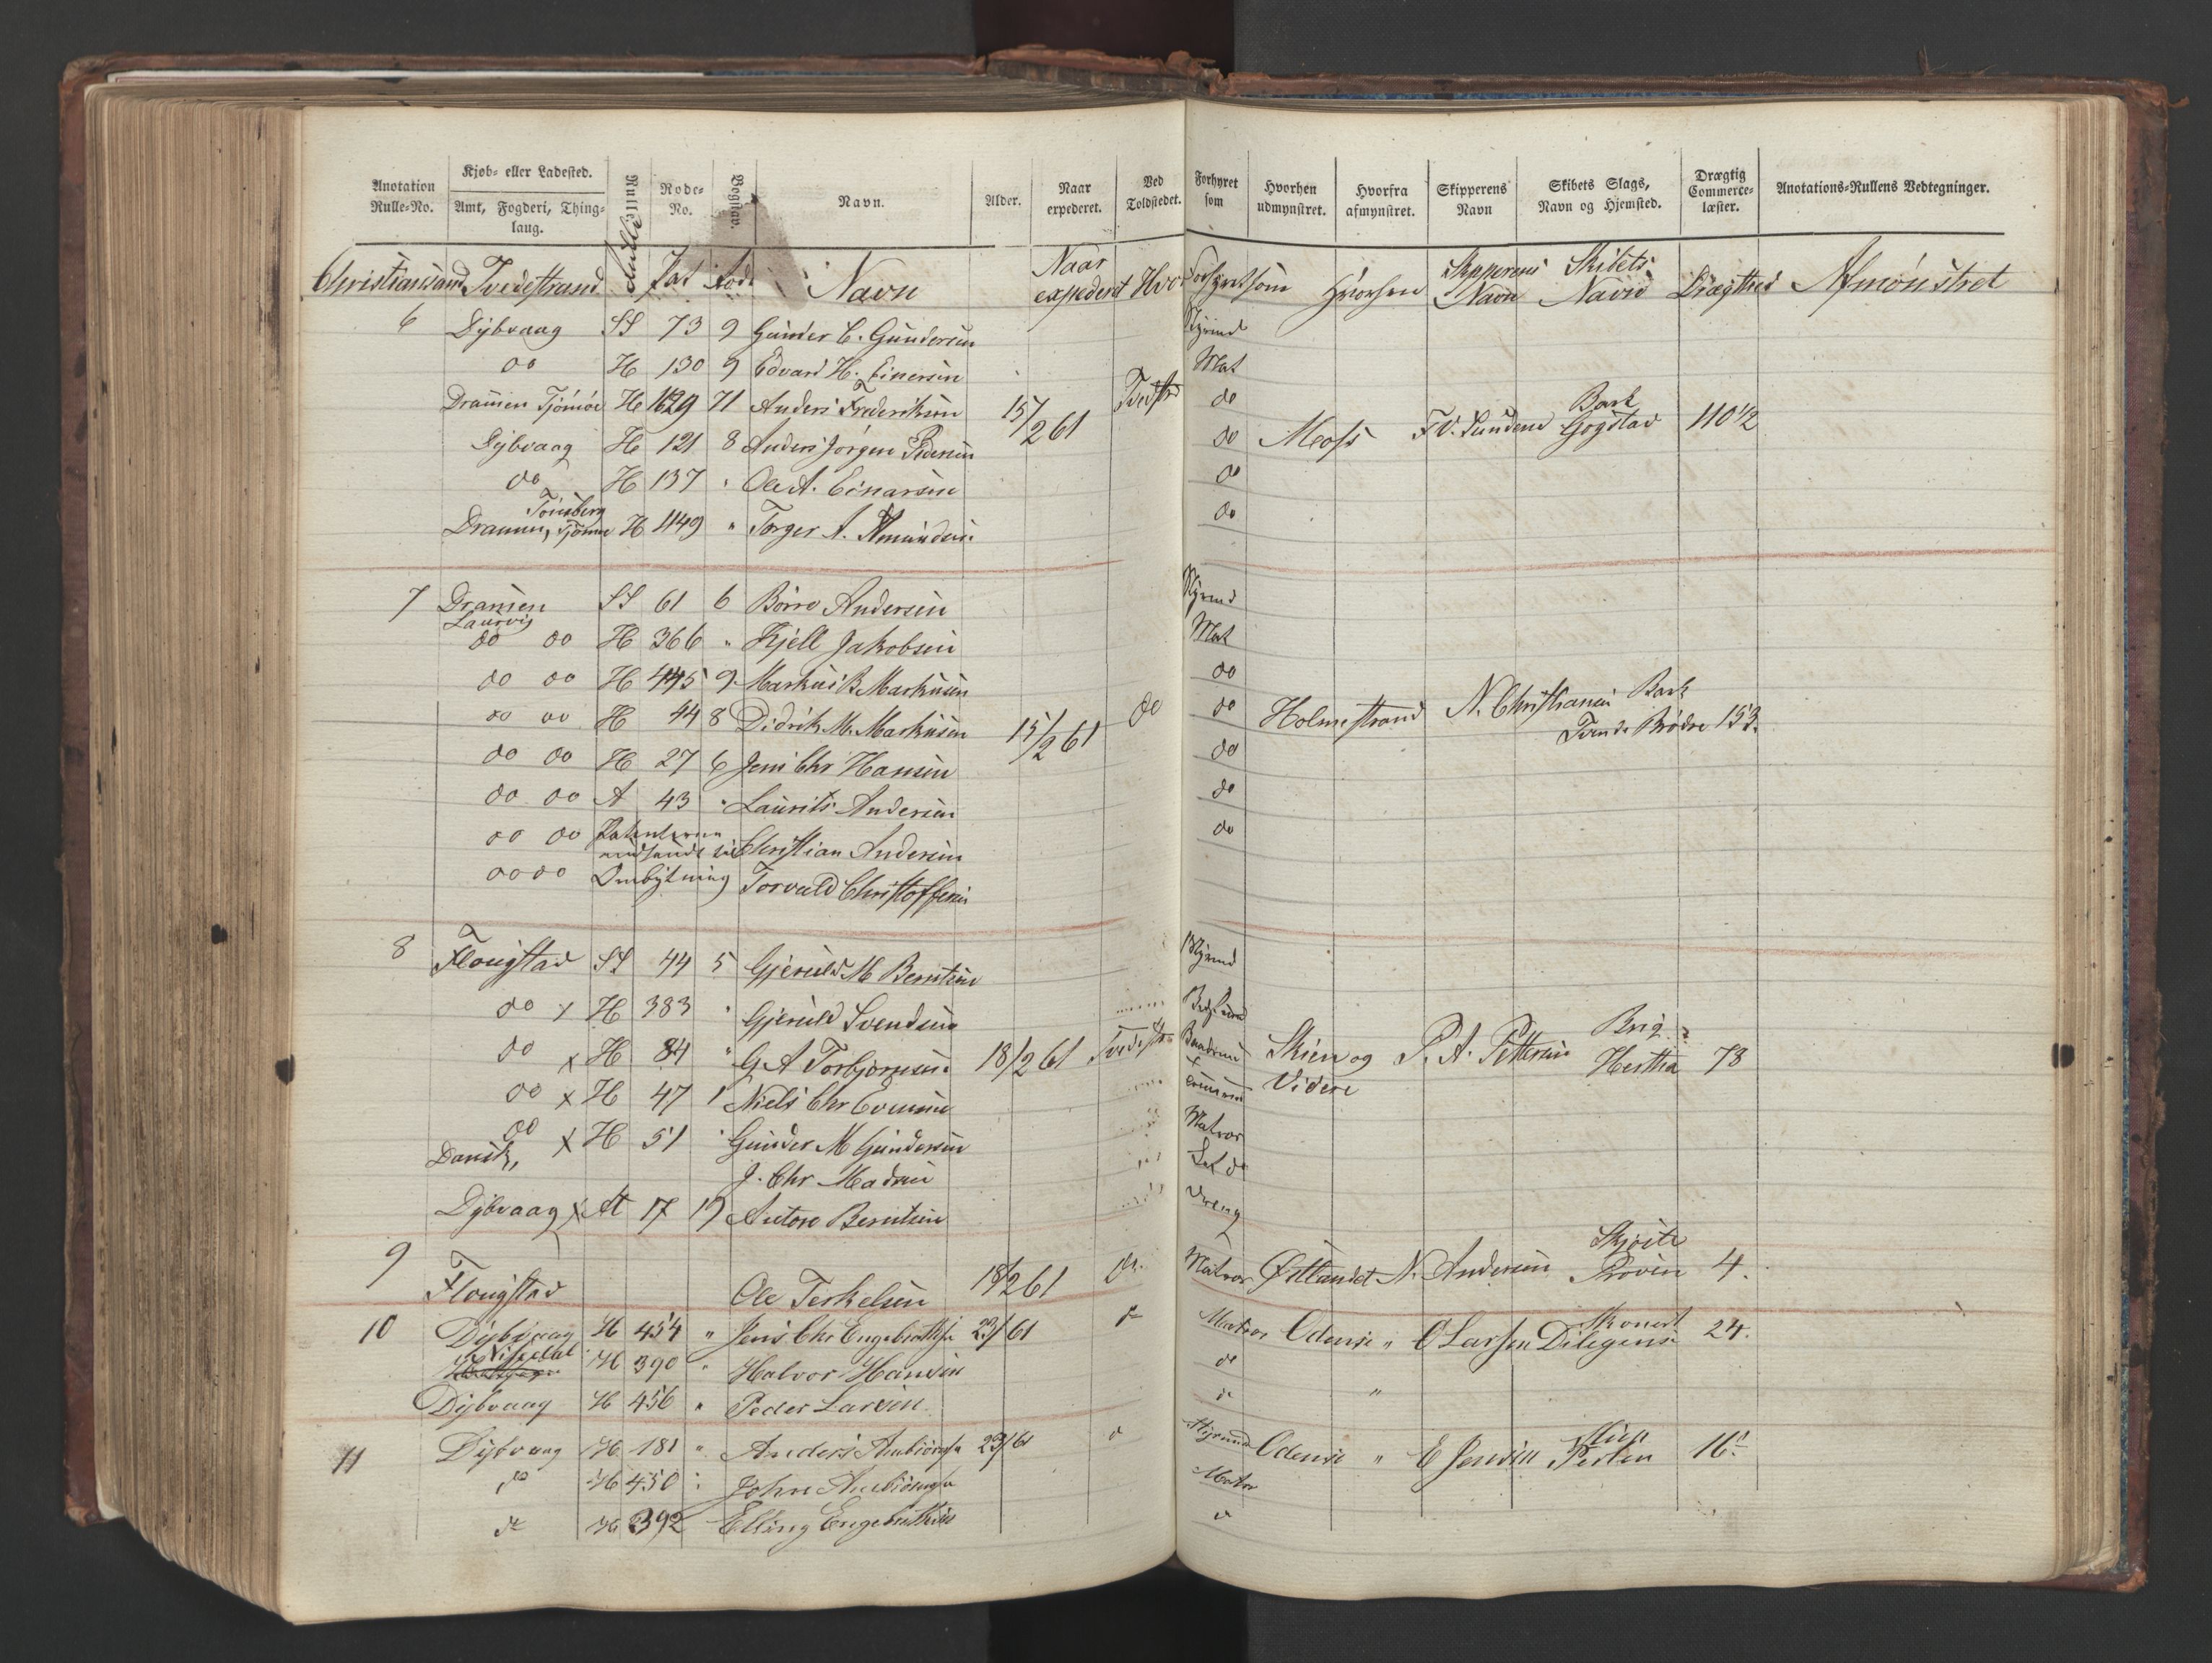 Anotation Rulle-No. Kjøb- eller Ladested. Amt, Fogderi, Thinglaug. Rulle. Rode-No. Bogstav. Navn. Alder. Naar expederet. Ved Toldstedet. Forhyret som Hvorhen udmynstret. Hvorfra afmynstret. Skipperens Navn Skibets Slags, Navn og Hjemsted. Drægtig Commerce-læster. Anotations-Rullens Vedtegninger.
Christianssand Tvedestrand Rulle Pat Rode Navn Naar expederet Hvor Forhyret som Hvorhen Skipperens Navn Skibets Navn Drægtihed Afmönstret
6 Dybvaag SS 73 9 Gunder C. Gundersen Styrmd
do H 130 9 Edvard H. Einersen Mat
Drammen Tjömöe H 1629 71 Anders Frederiksen 15/2 61 Tvedstrd do
Dybvaag H 121 8 Anders Jörgen Pedersen do Moss F V. Sundene Bark Gogstad 110 1/2
do H 137 " Ole A. Einarsen do
Drammen, Tönsberg Tjömöe H 1149 " Torger A. Amundsen do
7 Drammen Laurvig SS 61 6 Börre Andersen Styrmd
do do H 366 " Kjell Jakobsen Mat
do do H 445 9 Markus B Markusen do
do do H 44 8 Didrik M. Markusen 15/2 61 do do Holmestrand N. Christiansen Bark Tvende Brödre 153.
do do H 27 6 Jens Chr Hansen do
do do A 43 " Laurits Andersen do
do do Patenterne indsendt til Christian Andersen do
do do Ombytning Torvald Christoffersen
8 Flougstad SS 44 5 Gjeruld M Berntsen Styrmd
do x H 383 " Gjeruld Svendsen
do x H 84 " G A Torbjornsen 18/2 61 Tvedestr Skien og Videre P. A. Pettersen Brig Hertha 78
do x H 47 1 Niels Chr Evensen
do x H 51 " Gunder M Gundersen Matros
Dansk, J. Chr Madsen Let do
Dybvaag x A 17 19 Antore Berntsen Dreng
9 Flougstad Ole Terkelsen 18/2 61 do. Matros Østlandet N. Andersen Skjöite Pröven 4.
10 Dybvaag H 454 " Jens Chr Engebrethsn 23/2 61 do Matros Odense " O Larsen Skonert Diligense 24.
H 390 " Halvor Hansen do
Dybvaag H 456 " Peder Larsen do "
11 Dybvaag H 181 " Anders Ambiörnsn 23/2 61 do Styrmd Odense " E Jensen 16
do H 450 " John Ambiörnsn Matros
do H 392 Elling Engebrethsen do